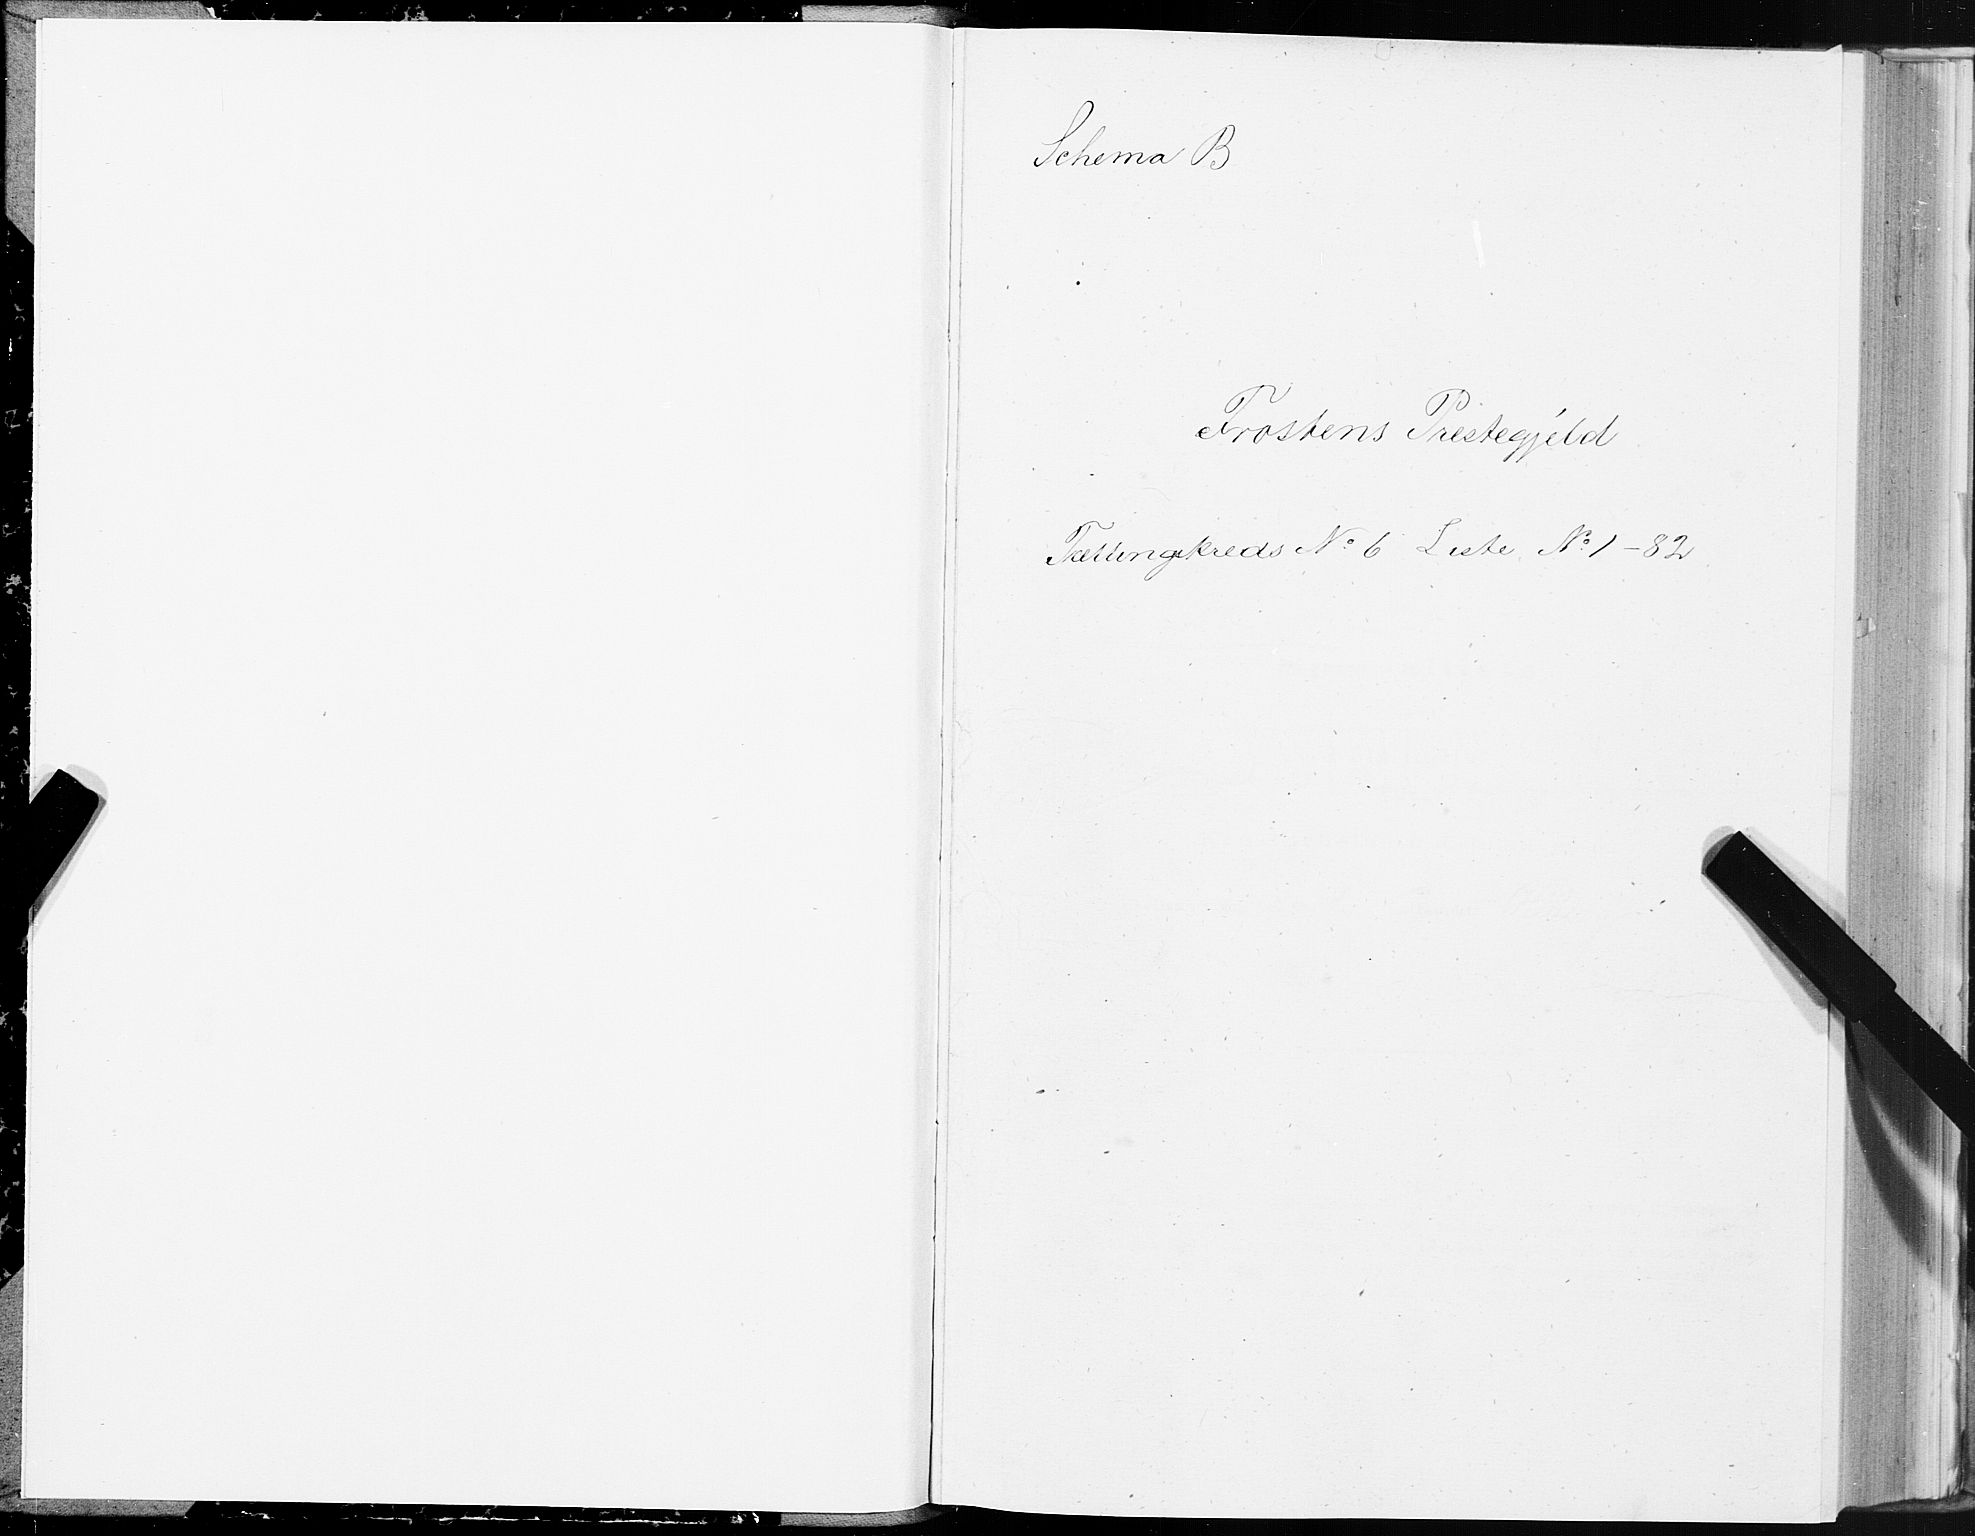 Schema B
Frostens Prestegjeld
Tællingskreds No 6 Liste No 1-82